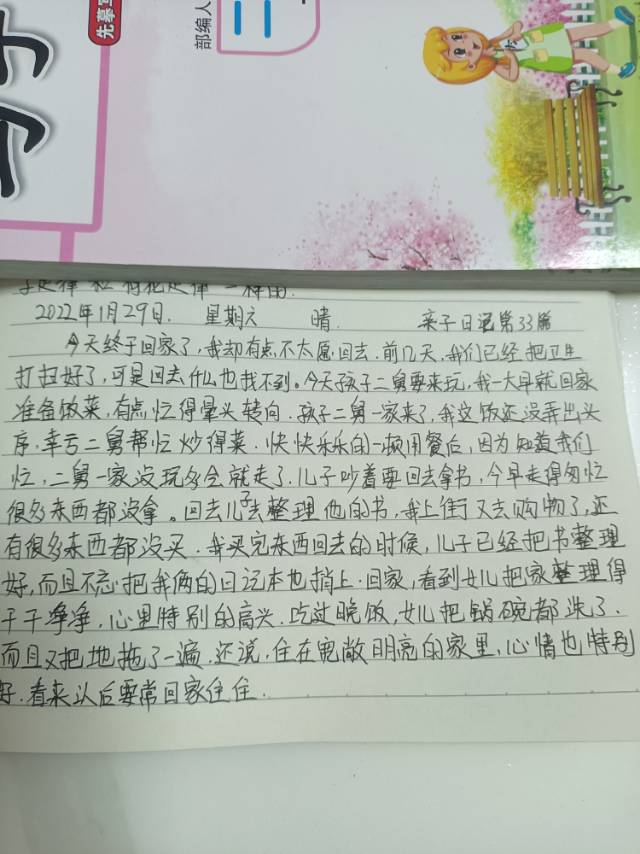 先摹写
部编人
三
2022年1月29日. 星期六 晴. 亲子日记第33篇
今天终于回家了,我却有点不太愿回去.前几天,我们已经把卫生
打扫好了,可是回去什么也找不到。今天孩子二舅要来玩,我一大早就回家
准备做菜,有点忙得晕头转向.孩子二舅一家来了,我这饭还没弄出头
序.幸亏二舅帮忙炒得菜.快快乐乐的一顿用餐后,因为知道我们
忙,二舅一家没玩多会就走了.儿子吵着要回去拿书,今早走得匆忙
很多东西都没拿。回去儿子去整理他的书,我上街又去购物了,还
有很多东西都没买.我买完东西回去的时候,儿子已经把书整理
好,而且不忘把我俩的日记本也捎上.回家,看到女儿把家整理得
干干净净,心里特别的高兴.吃过晚饭,女儿把锅碗都洗了.
而且又把地拖了一遍.还说,住在宽敞明亮的家里,心情也特别
好.看来以后要常回家住住.